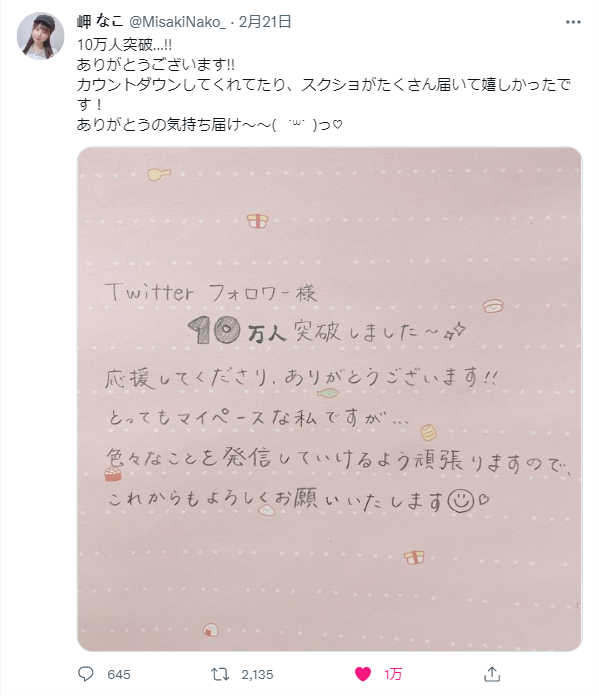 岬 なこ @MisakiNako_ · 2月21日
10万人突破...!!
ありがとうございます!!
カウントダウンしてくれてたり、スクショがたくさん届いて嬉しかったで
す！
ありがとうの気持ち届け〜〜( ˙꒳˙ )っ♡
Twitter フォロワー様
10万人 突破しました〜
応援してくださり、ありがとうございます!!
とってもマイペースな私ですが...
色々なことを発信していけるよう頑張りますので、
これからもよろしくお願いいたします☺♡
645 2,135 1万